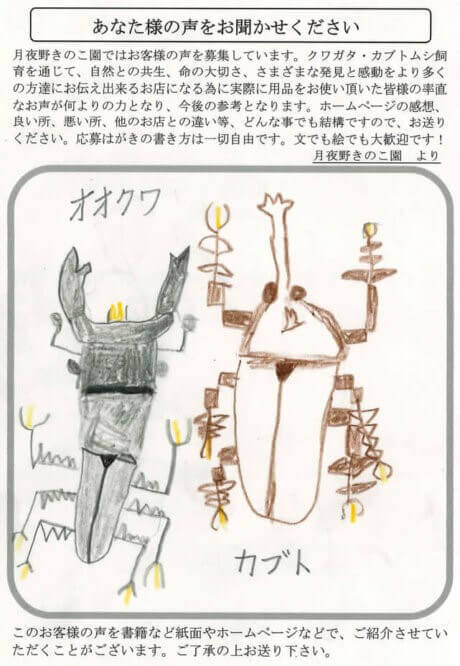 あなた様の声をお聞かせください
月夜野きのこ園ではお客様の声を募集しています。クワガタ・カブトムシ飼
育を通じて、自然との共生、命の大切さ、さまざまな発見と感動をより多く
の方達にお伝え出来るお店になる為に実際に用品をお使い頂いた皆様の率直
なお声が何よりの力となり、今後の参考となります。ホームページの感想、
良い所、悪い所、他のお店との違い等、どんな事でも結構ですので、お送り
ください。応募はがきの書き方は一切自由です。文でも絵でも大歓迎です！
月夜野きのこ園　より
オオクワ
カブト
このお客様の声を書籍など紙面やホームページなどで、ご紹介させてい
ただくことがございます。ご了承の上お送り下さい。